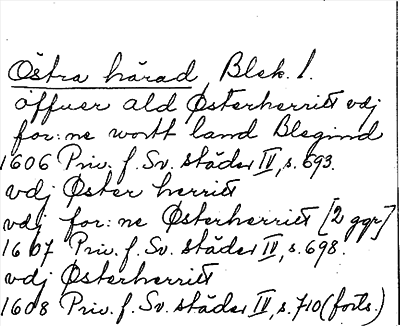 Östra härad, Blek. l.
öffuer ald Østerherritt vdj
for:ne wortt land Blegind
1606 Priv. f. Sv. städer IV, s. 693.
vdj Øster herritt
vdj for:ne Østerherritt [2 ggr]
1607 Priv. f. Sv. städer IV, s. 698.
vdj Østerherritt
1608 Priv. f. Sv. städer IV, s. 710 (forts.)